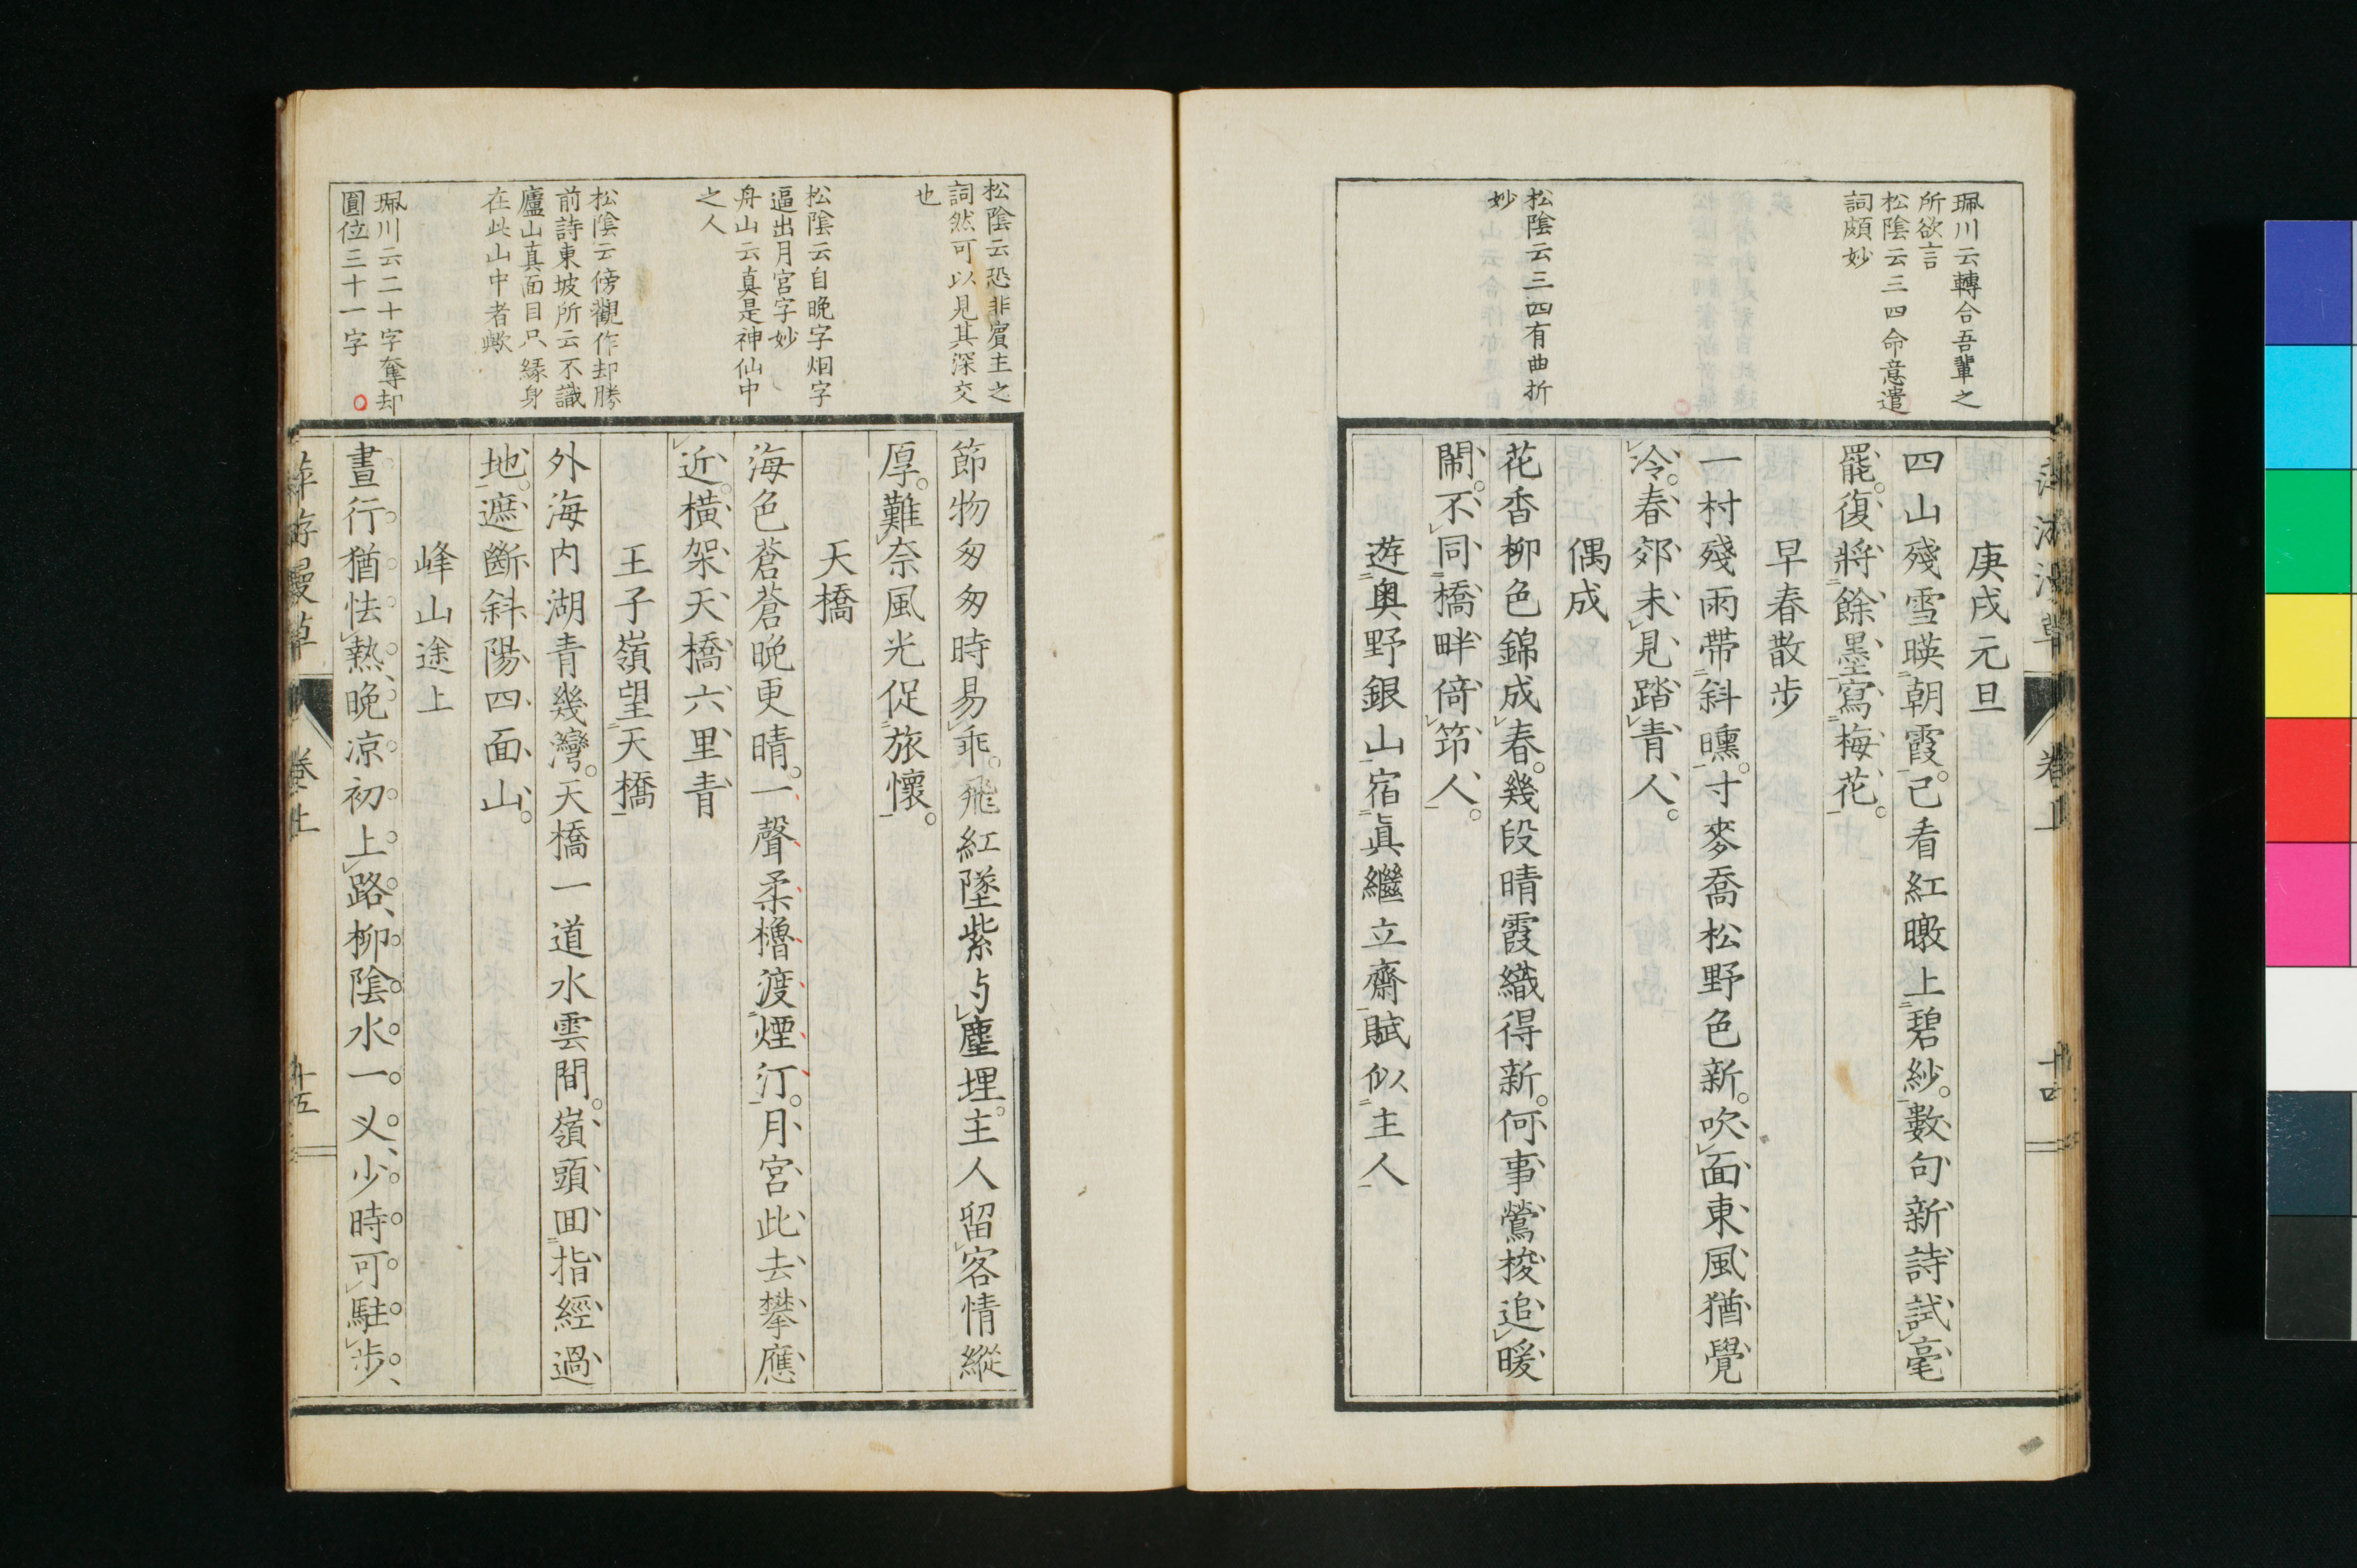 珮川云轉合吾輩之
所欲言
松陰云三四命意遣
詞頗妙
松陰云三四有曲折
妙
庚戌元旦
四山殘雪暎朝霞。已看紅暾上碧紗。數句新詩試毫
罷。復將餘墨寫梅花。
早春散步
一村殘雨帶斜曛。寸麥喬松野色新。吹面東風猶覺
冷。春郊未見踏青人。
偶成
花香柳色錦成春。幾段晴霞織得新。何事鶯梭追暖
鬧。不同橋畔倚筇人。
遊奥野銀山宿眞繼立齋賦似主人
卷上
十四
松陰云恐非賓主之
詞然可以見其深交
也
松陰云自晚字烟字
逼出月宮字妙
舟山云真是神仙中
之人
松陰云傍觀作却勝
前詩東坡所云不識
廬山真面目只緣身
在此山中者歟
珮川云二十字奪却
圓位三十一字
節物匆匆時易乖。飛紅墜紫与塵埋。主人留客情縱
厚。難奈風光促旅懷。
天橋
海色蒼蒼晚更晴。一聲柔櫓渡煙汀。月宮此去攀應
近。橫架天橋六里青
王子嶺望天橋
外海内湖青幾灣。天橋一道水雲間。嶺頭回指經過
地。遮斷斜陽四面山。
峰山途上
晝行猶怯熱、晚凉初上路、柳陰水一义、少時可駐步、
萍游漫草
卷上
十五